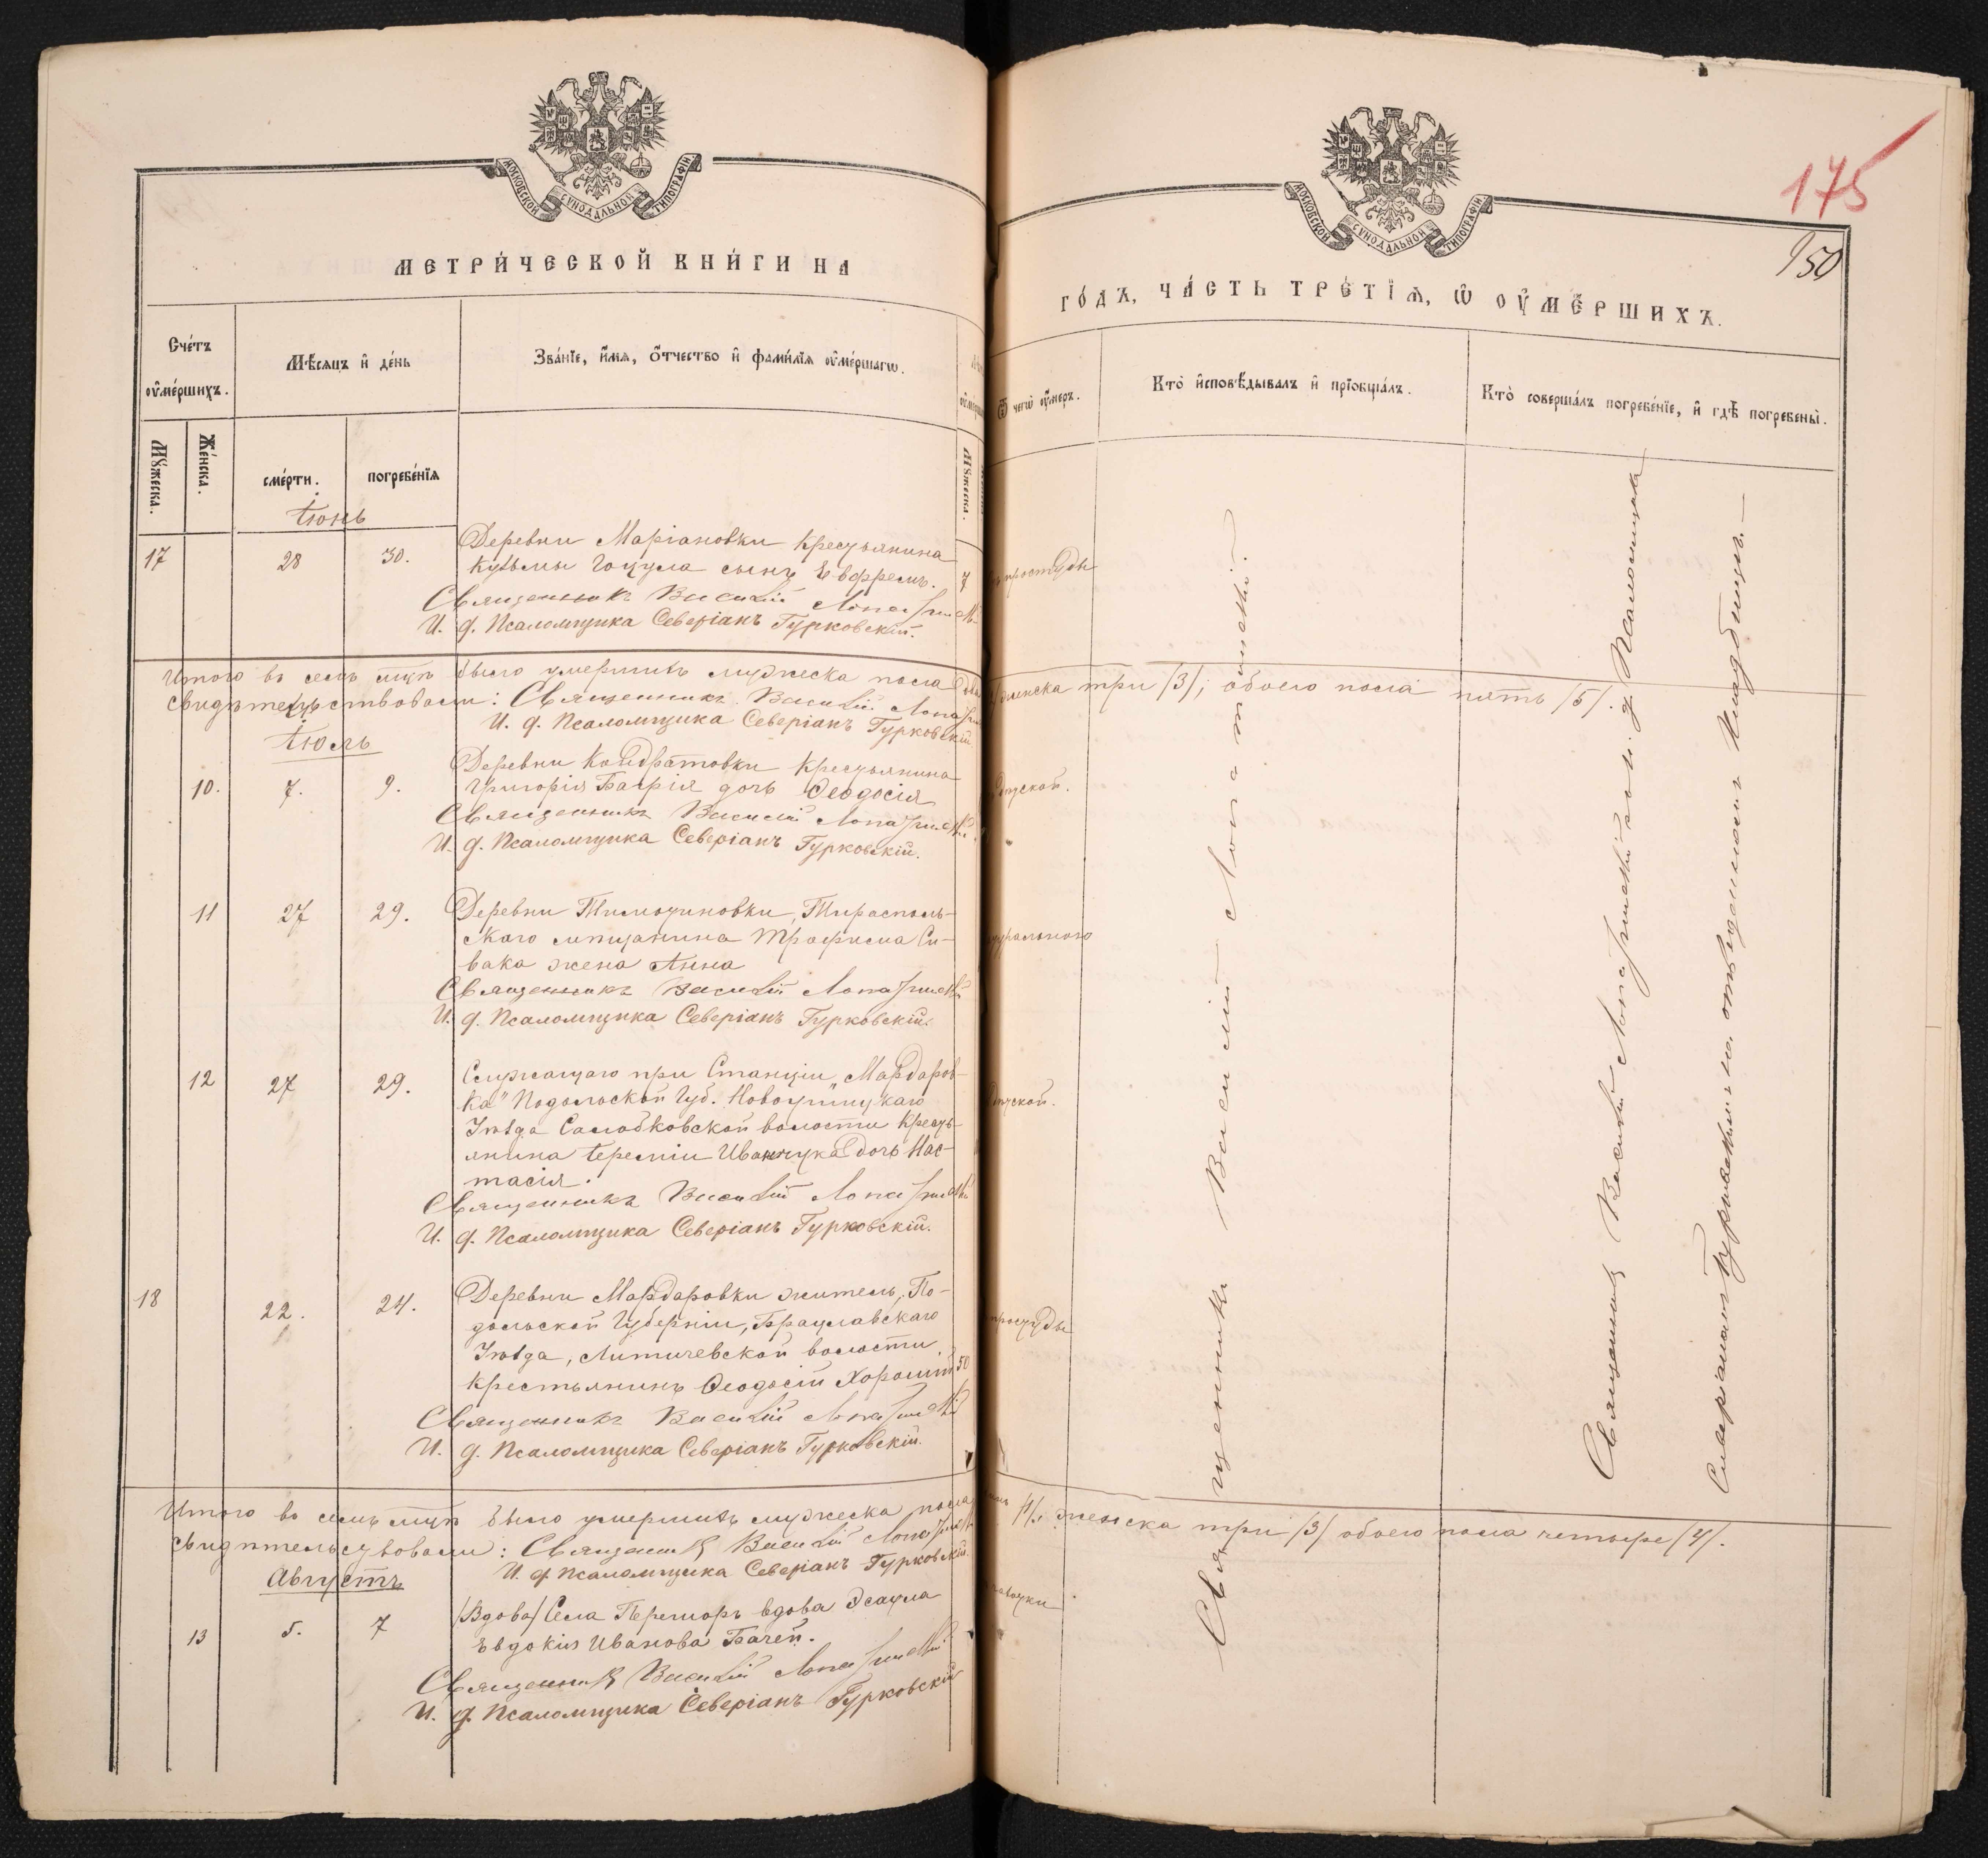 МОСКОВСКОЙ СѴНОДАЛЬНОЙ ТИПОГРАФІИ
МЕТРИ́ЧЕСКОЙ КНИ́ГИ НА
Сче́тъ ᲂу҆ме́ршихъ.
Мѣ́сяцъ и҆ де́нь
Зва́нїе, и҆́мя, ѻ҆́тчество и҆ фами́лїя ᲂу҆ме́ршагѡ.
Мꙋ́жеска.
Же́нска.
сме́рти.
погребе́нїя
Мꙋ́жеска.
Іюнь
17 28 30. Деревни Маріановки крестьянина
Кузьмы Гоцула сынъ Евфремъ. 7
Священникъ Василій Лопатинскій
И. д. Псаломщика Северіанъ Гурковскій.
Итого въ семъ мцѣ было умершихъ мужеска пола два
Свидѣтельствовали: Священникъ Василій Лопатинскій
И. д. Псаломщика Северіанъ Гурковскій
Іюль
10. 7. 9. Деревни Кондратовки крестьянина
Григорія Багрія дочь Ѳеодосія
Священникъ Василій Лопатинскій
И. д. Псаломщика Северіанъ Гурковскій.
11 27 29. Деревни Тимошиновки, Тирасполь-
скаго мѣщанина Трофима Си-
вака жена Анна
Священникъ Василій Лопатинскій
И. д. Псаломщика Северіанъ Гурковскій.
12 27 29. Служащаго при Станціи „Мардаров-
ка" Подольской Губ. Новоушицкаго
Уѣзда Солобковской волости кресть-
янина Іереміи Иванчука дочь Нас-
тасія.
Священникъ Василій Лопатинскій
И. д. Псаломщика Северіанъ Гурковскій.
18 22. 24. Деревни Мардаровки житель, По-
дольской Губерніи, Брацлавскаго
Уѣзда, Литичевской волости
крестьянинъ Ѳеодосій Хорошій 50
Священникъ Василій Лопатинскій
И. д. Псаломщика Северіанъ Гурковскій.
Итого въ семъ мцѣ было умершихъ мужеска пола
Свидѣтельствовали: Священникъ Василій Лопатинскій
И. д. Псаломщика Северіанъ Гурковскій.
Августъ
13 5. 7 /Вдова/ Села Перешоръ вдова Эсаула
Евдокія Иванова Бачей.
Священникъ Василій Лопатинскій
И. д. Псаломщика Северіанъ Гурковскій
175
150
МОСКОВСКОЙ СѴНОДАЛЬНОЙ ТИПОГРАФІИ
ГО́ДЪ, ЧА́СТЬ ТРЕ́ТЇЯ, Ѡ҆ ОУ҆МЕ́РШИХЪ.
Ѿ чегѡ̀ ᲂу҆́меръ.
Кто̀ и҆сповѣ́дывалъ и҆ прїѡбща́лъ.
Кто̀ соверша́лъ погребе́нїе, и҆ гдѣ̀ погребены̀.
простуды
женска три /3/; обоего пола пять /5/.
простуды
/1/; женска три /3/ обоего пола четыре /4/.
Священникъ Василій Лопатинскій.
Священникъ Василій Лопатинскій съ и. д. Псаломщика
Северіаномъ Гурковскимъ на отведенномъ кладбищѣ.